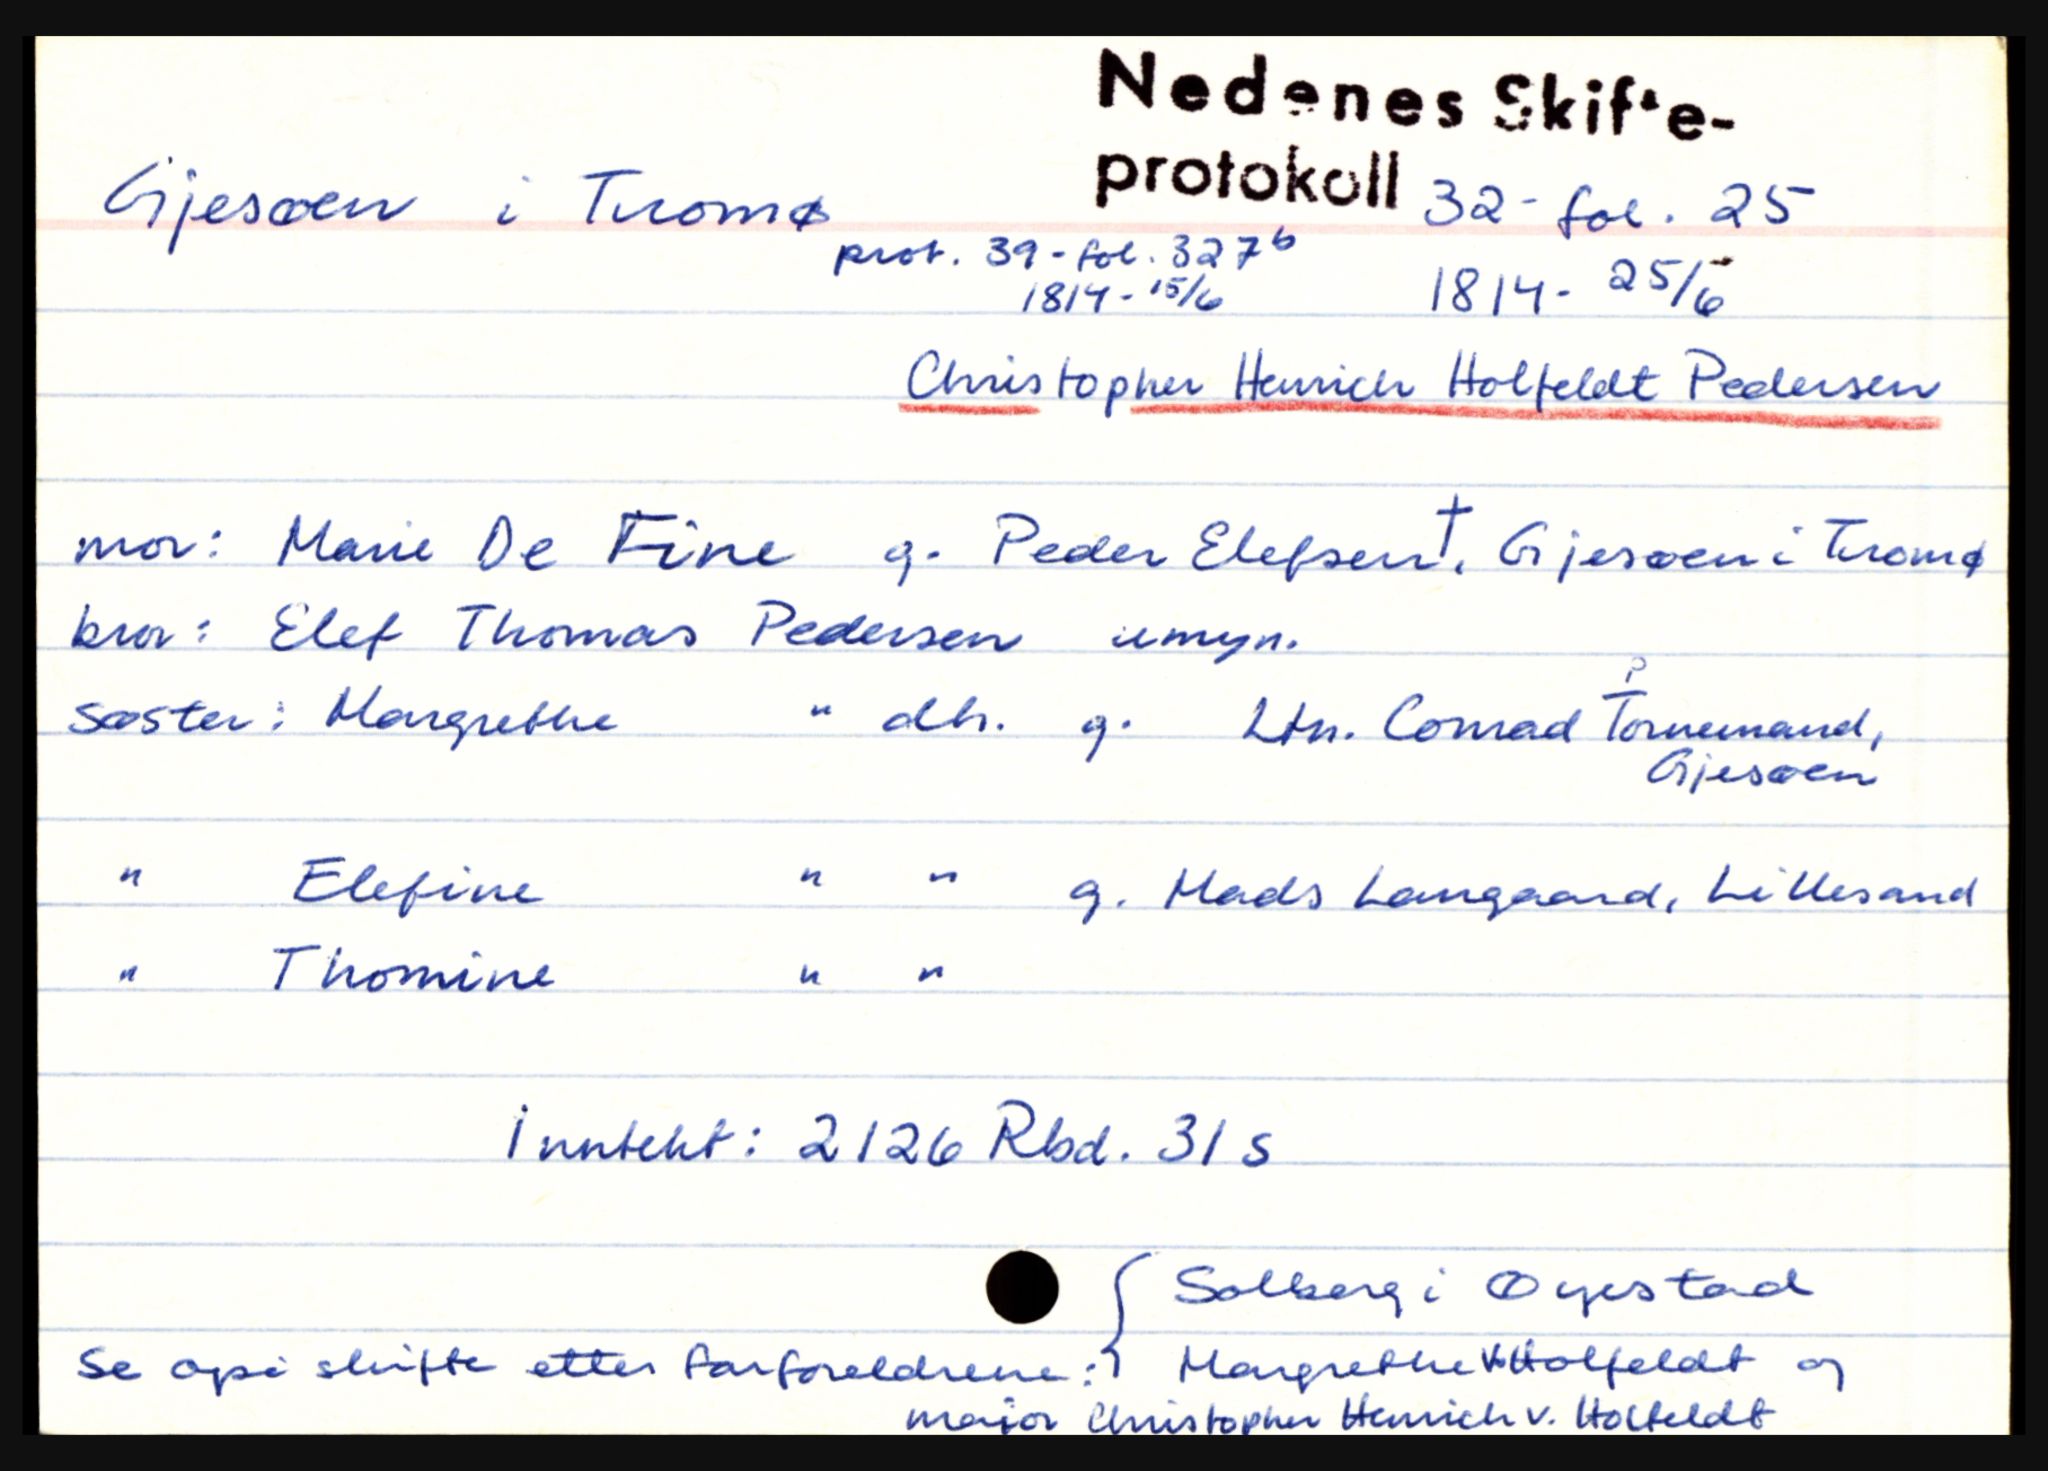 Nedenes Skifte-
protokoll 32 - fol. 25
Gjesøen i Tromø
prot. 39 - fol. 327b
1814 - 15/6
1814 - 25/6
Christopher Henrich Holfeldt Pedersen
mor: Marie De Fine g. Peder Elefsen †, Gjesøen i Tromø
bror: Elef Thomas Pedersen umyn.
søster: Margrethe " dtr. g. Ltn. Conrad Tornemand,
P
Gjesøen
" Elefine " " g. Mads Langaard, Lillesand
" Thomine " "
Inntekt: 2126 Rbd. 31 s
Solberg i Øyestad
Se også skifte etter farforeldrene: Margrethe v. Holfeldt og
major Christopher Henrich v. Holfeldt